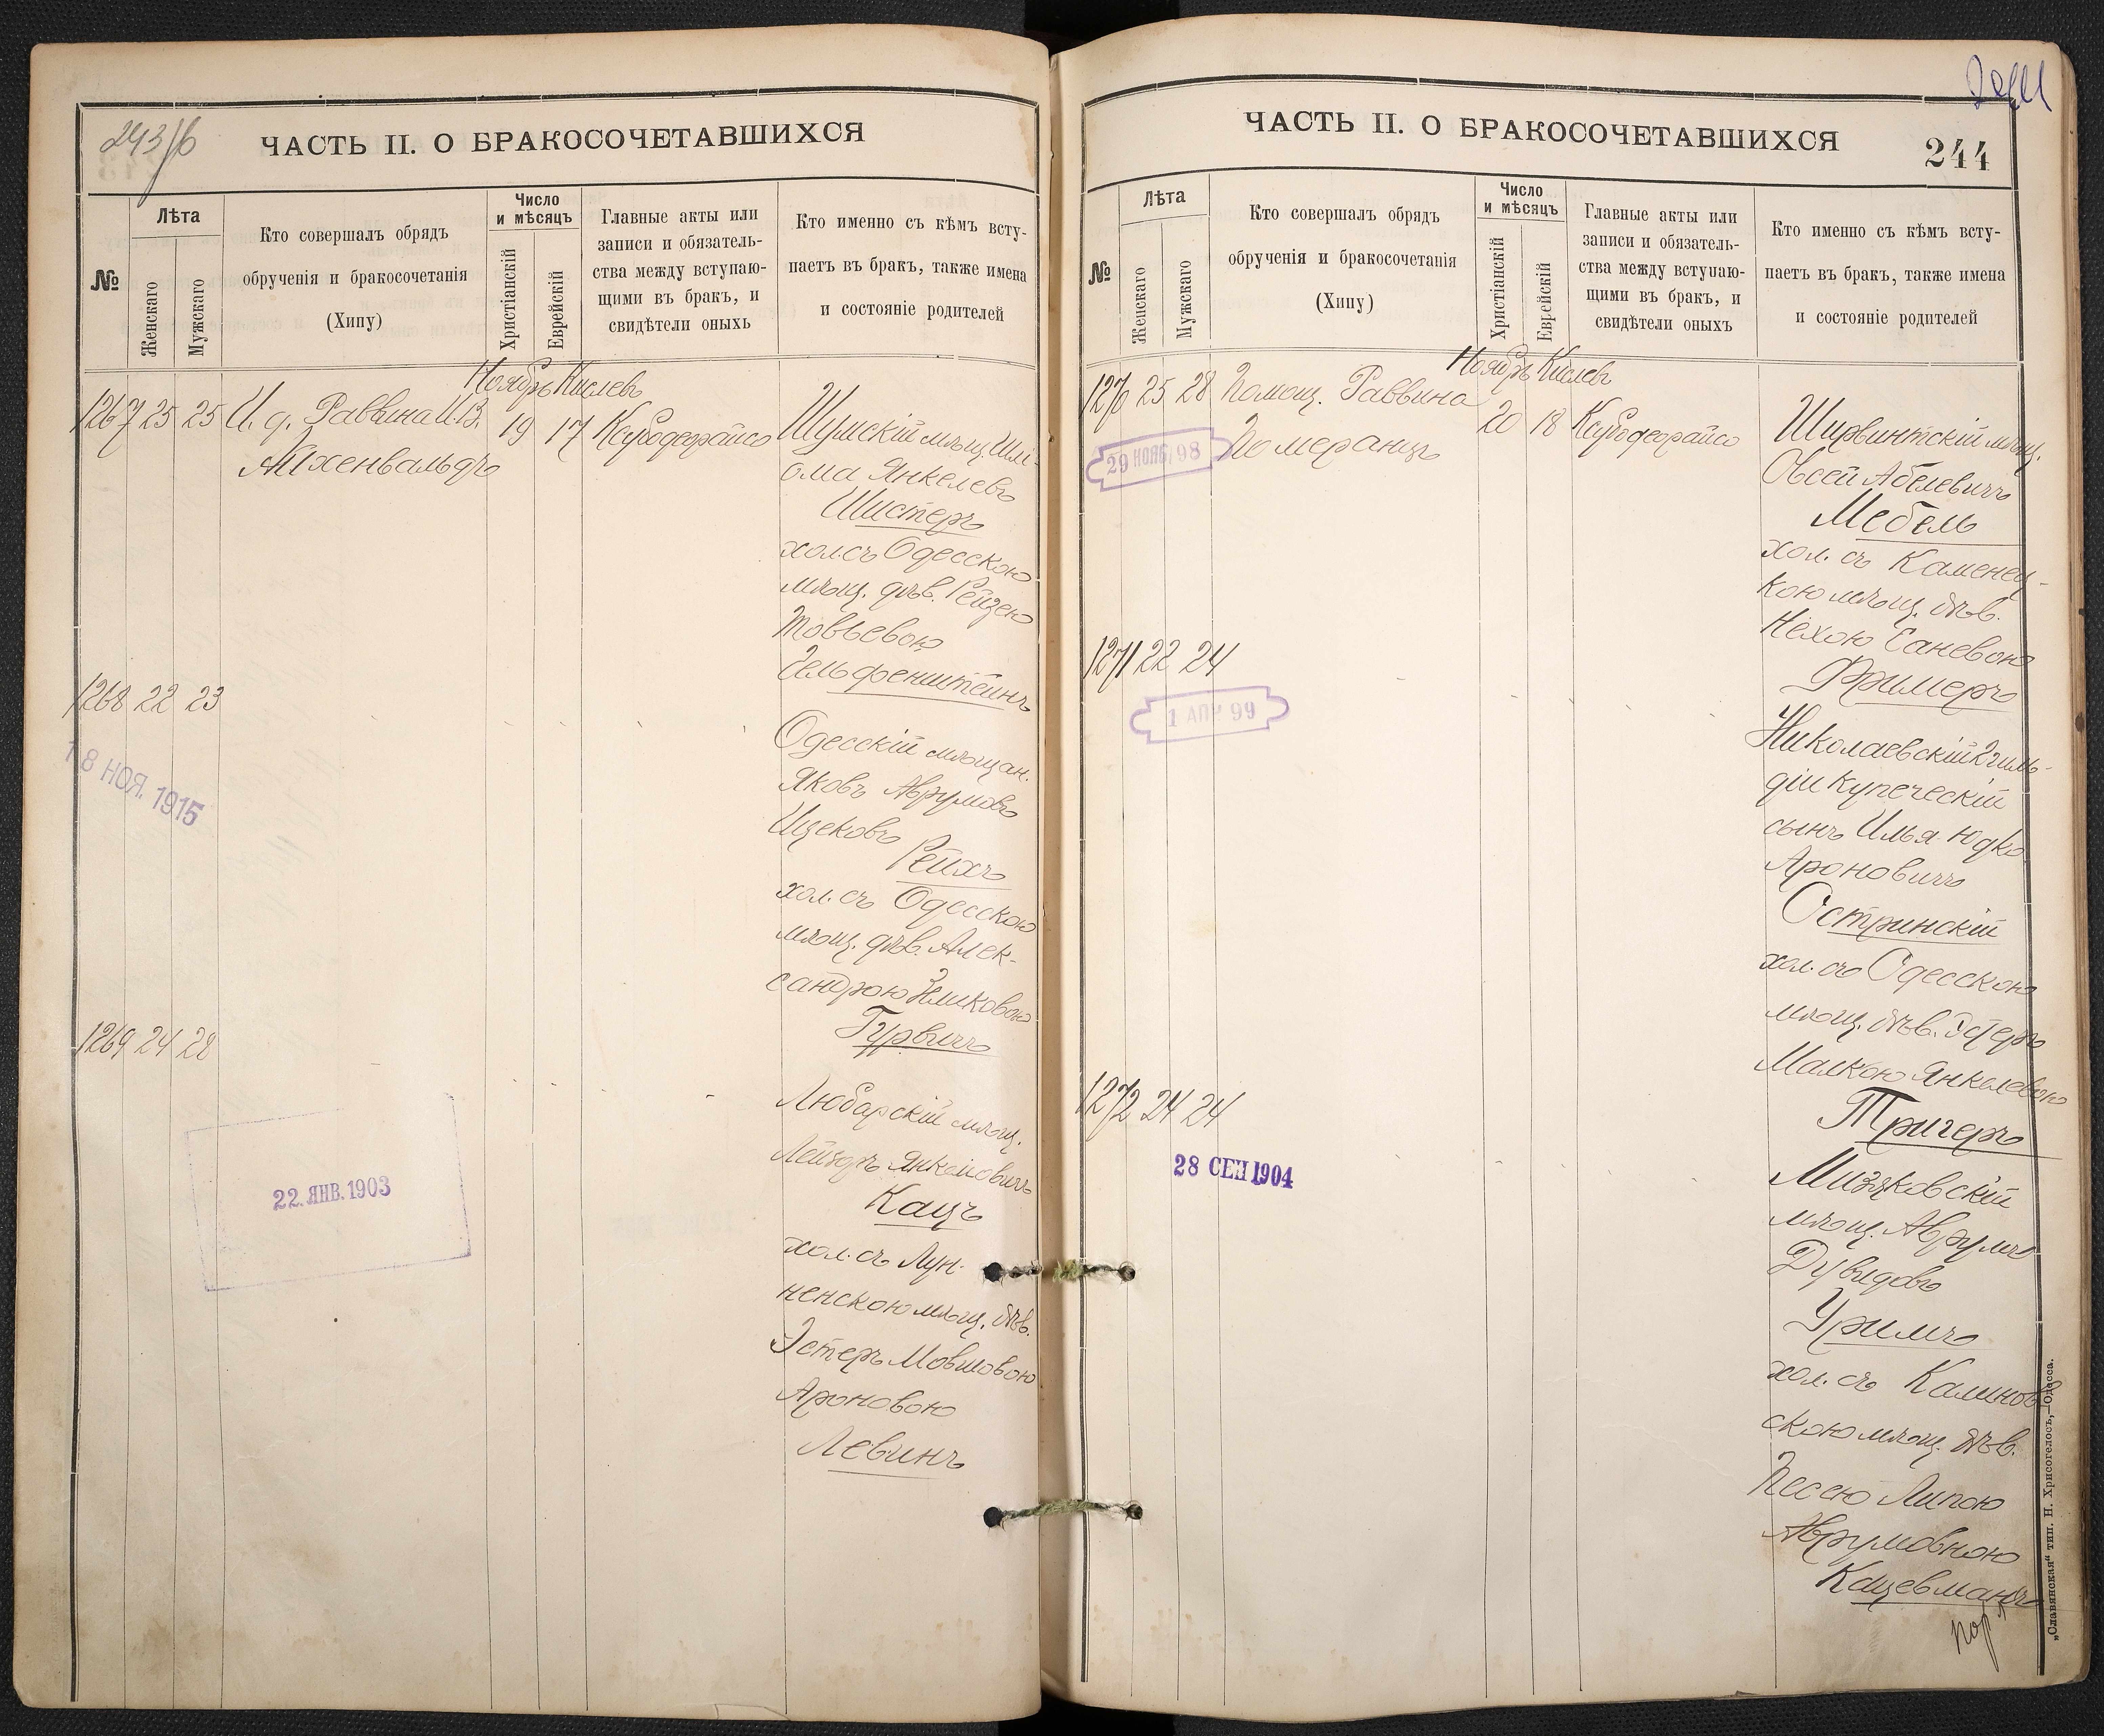 243/б
ЧАСТЬ II. О БРАКОСОЧЕТАВШИХСЯ
№
Лѣта
Женскаго
Мужскаго
Кто совершалъ обрядъ
обрученія и бракосочетанія
(Хипу)
Число
и мѣсяцъ
Христіанскій
Еврейскій
Главные акты или
записи и обязатель-
ства между вступаю-
щими въ бракъ, и
свидѣтели оныхь
Кто именно съ кѣмъ всту-
паетъ въ бракъ, также имена
и состояніе родителей
Ноябрь Кислевъ
1267 25 25 И. д. Раввина
Айхенвальдъ
19 17
Шумскій мѣщ. Шлі-
ома Янкелевъ
Шистеръ
хол. съ Одесскою
мѣщ. дѣв. Рейзею
Товьевою
Гельфенштейнъ
1268 22 23
18 НОЯ. 1915
Одесскій мѣщан.
Яковъ Аврумовъ
Ицековъ
Рейхъ
хол. съ Одесскою
мѣщ. дѣв. Алек-
сандрою Зиликовою
Гурвичъ
1269 24 28
22. ЯНВ. 1903
Любарскій мѣщ.
Лейзоръ Янкелевичъ
Кацъ
хол. съ Лун-
ненскою мѣщ. дѣв.
Эстеръ Мовшовою
Ароновою
Левинъ
ЧАСТЬ II. О БРАКОСОЧЕТАВШИХСЯ
244
№
Лѣта
Женскаго
Мужскаго
Кто совершалъ обрядъ
обрученія и бракосочетанія
(Хипу)
Число
и мѣсяцъ
Христіанскій
Еврейскій
Главные акты или
записи и обязатель-
ства между вступаю-
щими въ бракъ, и
свидѣтели оныхъ
Кто именно съ кѣмъ всту-
паетъ въ бракъ, также имена
и состояніе родителей
Ноябрь Кислевъ
1270 25 28 Помощ. Раввина
Померанцъ
20 18
29 НОЯБ. 98
Ширвинтскій мѣщ.
Овсей Абелевичъ
Мебель
хол. съ Каменец-
кою мѣщ. дѣв.
Нехою Ганевою
Фримеръ
1271 22 24
1 АПР 99
Николаевскій 2 гиль-
діи купеческій
сынъ Илья-Юдко
Ароновичъ
Остринскій
хол. съ Одесскою
мѣщ. дѣв. Эстеръ
Малкою Янкелевою
Тригеръ
1272 24 24
28 СЕН 1904
Мизяковскій
мѣщ. Аврумъ
Дувидовъ
Уримъ
хол. съ Калинов-
скою мѣщ. дѣв.
Песею Липою
Аврумовною
Кацевманъ
„Славянская“ тип. Н. Хрисогелосъ,—Одесса.